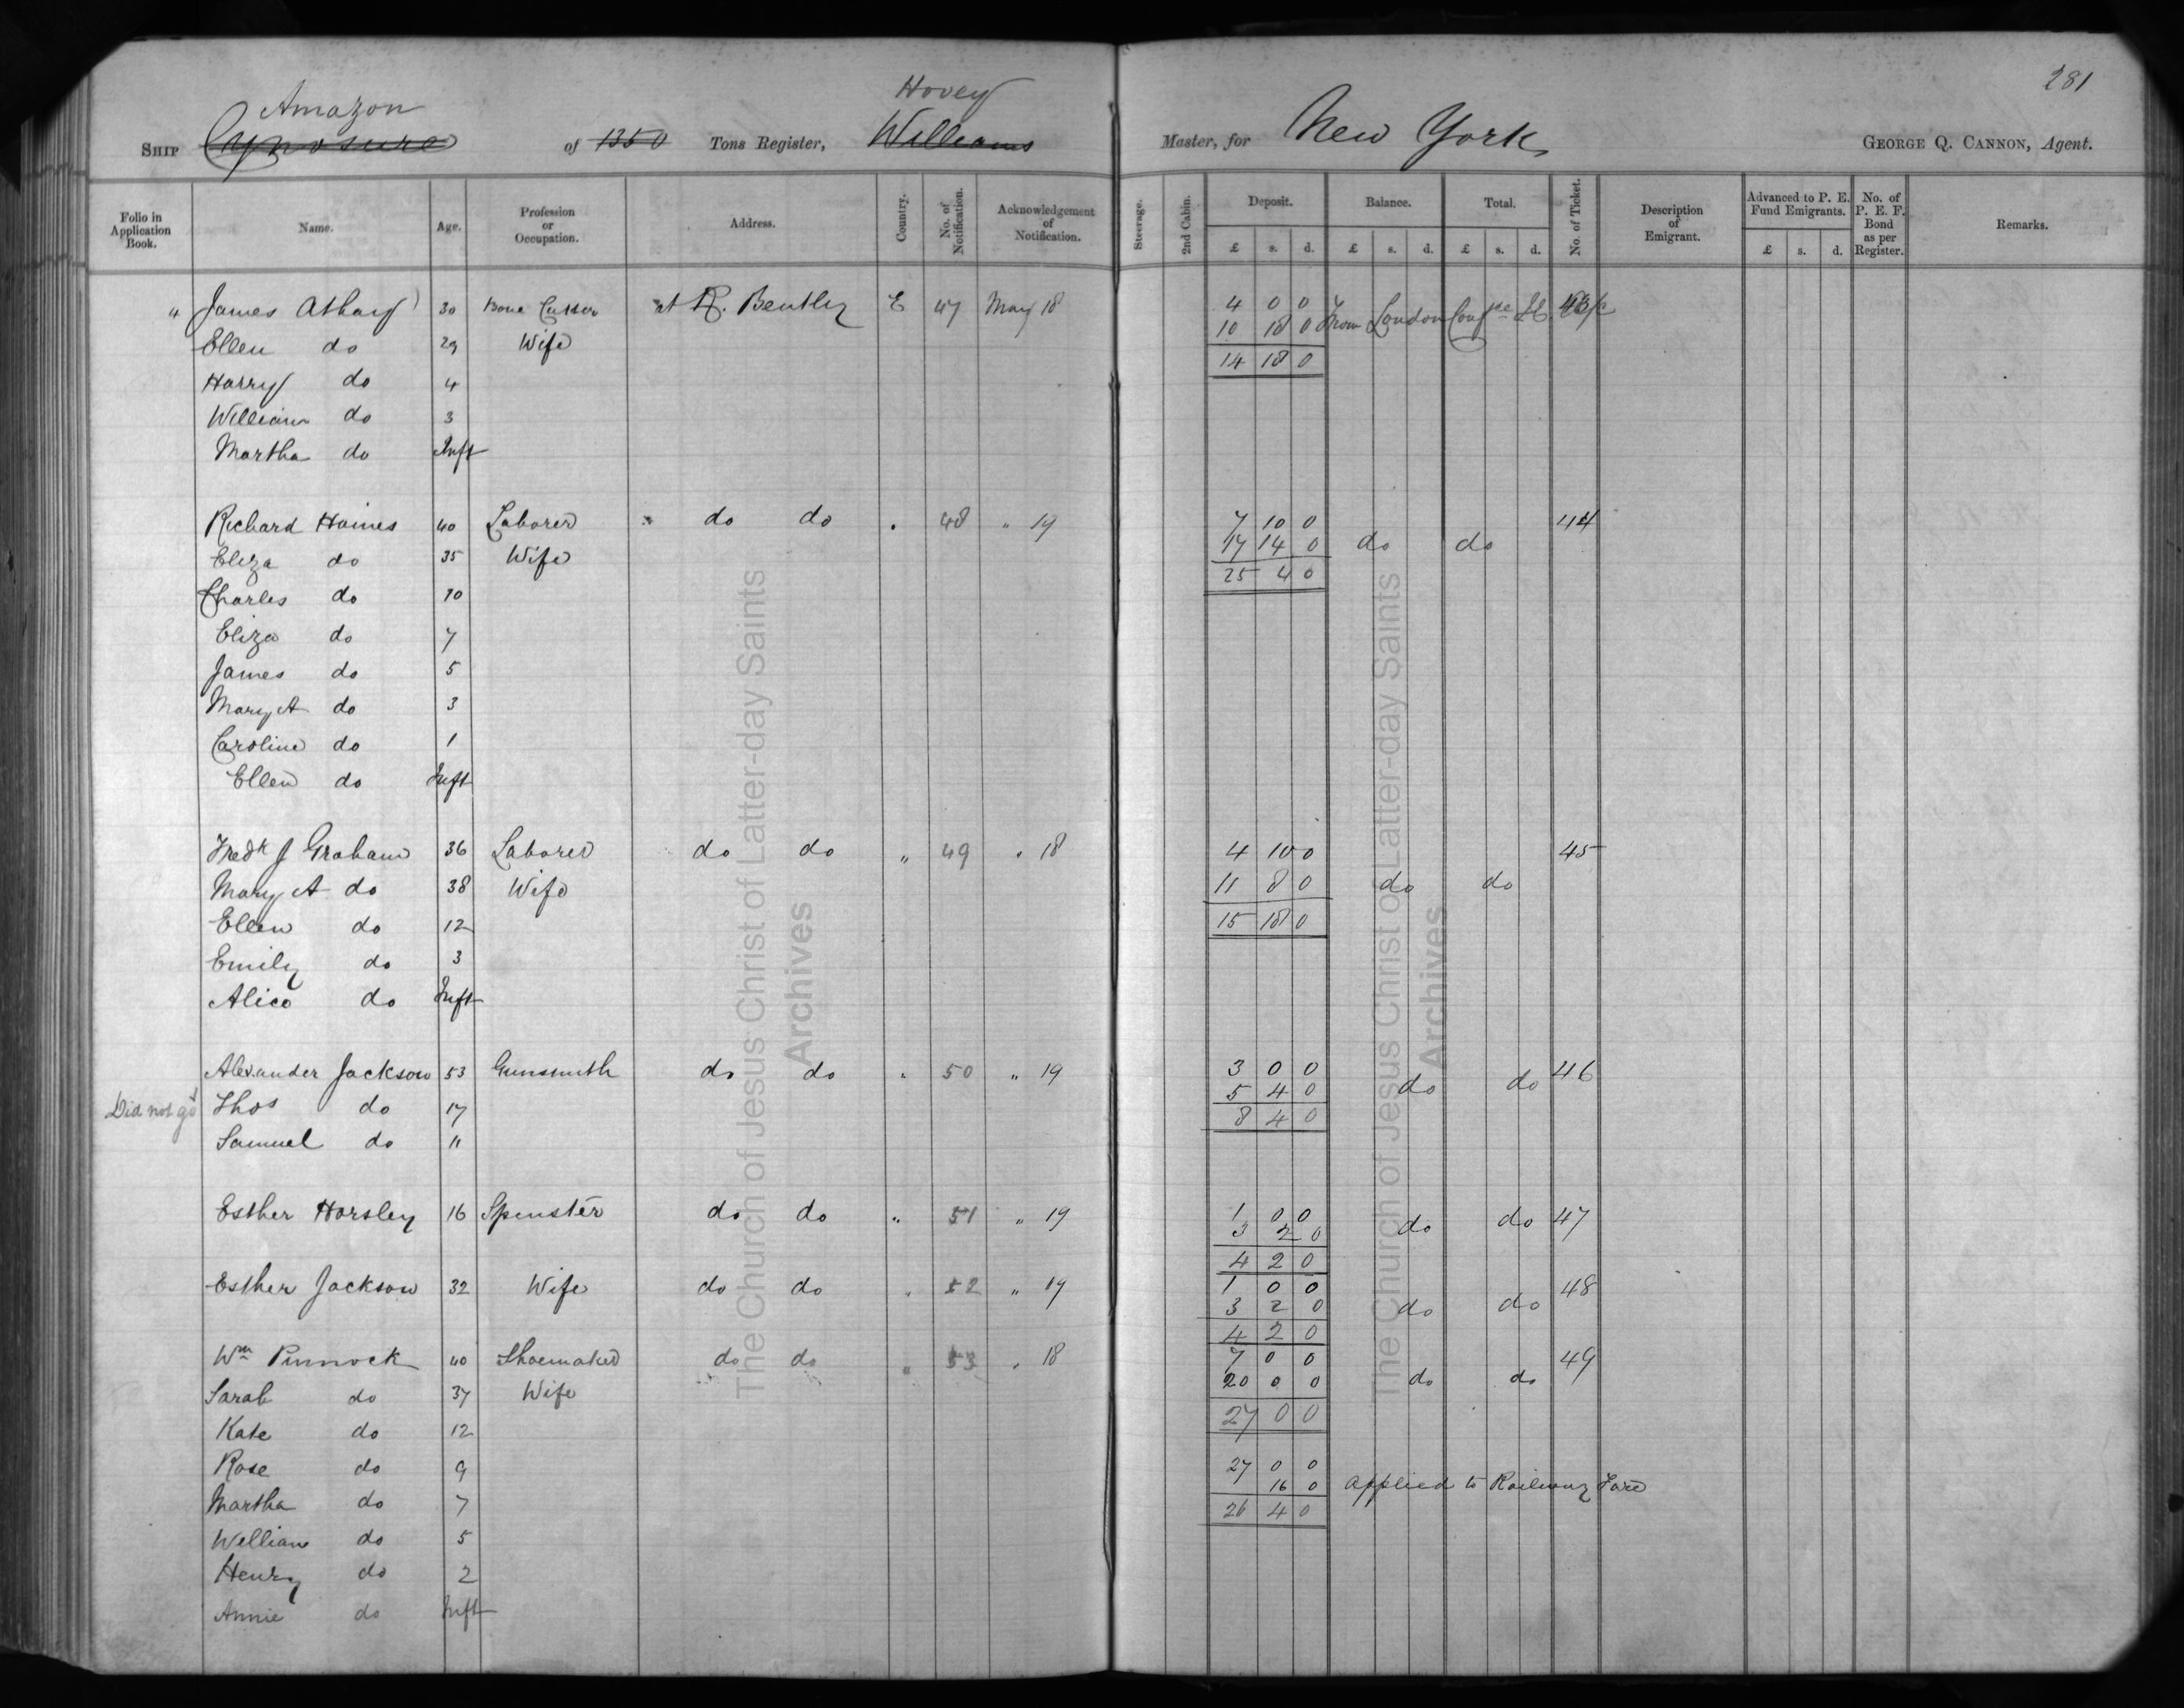 281
Amazon Hovey
SHIP Cynosure of 1350 Tons Register, Williams Master, for New York GEORGE Q. CANNON, Agent.
Folio in Application Book. Name. Age. Profession or Occupation. Address. Country. No. of Notification. Acknowledgement of Notification. Steerage. 2nd Cabin. Deposit. Balance. Total. No. of Ticket. Description of Emigrant. Advanced to P. E. Fund Emigrants. No. of P. E. F. Bond as per Register. Remarks.
£ s. d. £ s. d. £ s. d. £ s. d.
" James Athay 30 Bone Cutter at R. Bentley E 47 May 18 4 0 0
10 18 0 From London
Ellen do 29 Wife 14 18 0
Harry do 4
William do 3
Martha do Inft
Richard Haines 40 Laborer " do do " 48 " 19 7 10 0 44
17 14 0 do do
Eliza do 35 Wife 25 4 0
Charles do 10
Eliza do 7
James do 5
Mary A do 3
Caroline do 1
Ellen do Inft
Fredk J Graham 36 Laborer do do " 49 " 18 4 10 0 45
Mary A do 38 Wife 11 8 0 do do
Ellen do 12 15 18 0
Emily do 3
Alice do Inft
Alexander Jackson 53 Gunsmith do do " 50 " 19 3 0 0 46
5 4 0 do do
Did not go Thos do 17 8 4 0
Samuel do 11
Esther Horsley 16 Spinster do do " 51 " 19 1 0 0 47
3 2 0 do do
4 2 0
Esther Jackson 32 Wife do do " 52 " 19 1 0 0 48
3 2 0 do do
4 2 0
Wm Pinnock 40 Shoemaker do do " 53 " 18 7 0 0 49
Sarah do 37 Wife 20 0 0 do do
Kate do 12 27 0 0
Rose do 9 27 0 0
16 0 Applied to Railway Fare
Martha do 7 26 4 0
William do 5
Henry do 2
Annie do Inft
The Church of Jesus Christ of Latter-day Saints
Archives
The Church of Jesus Christ of Latter-day Saints
Archives